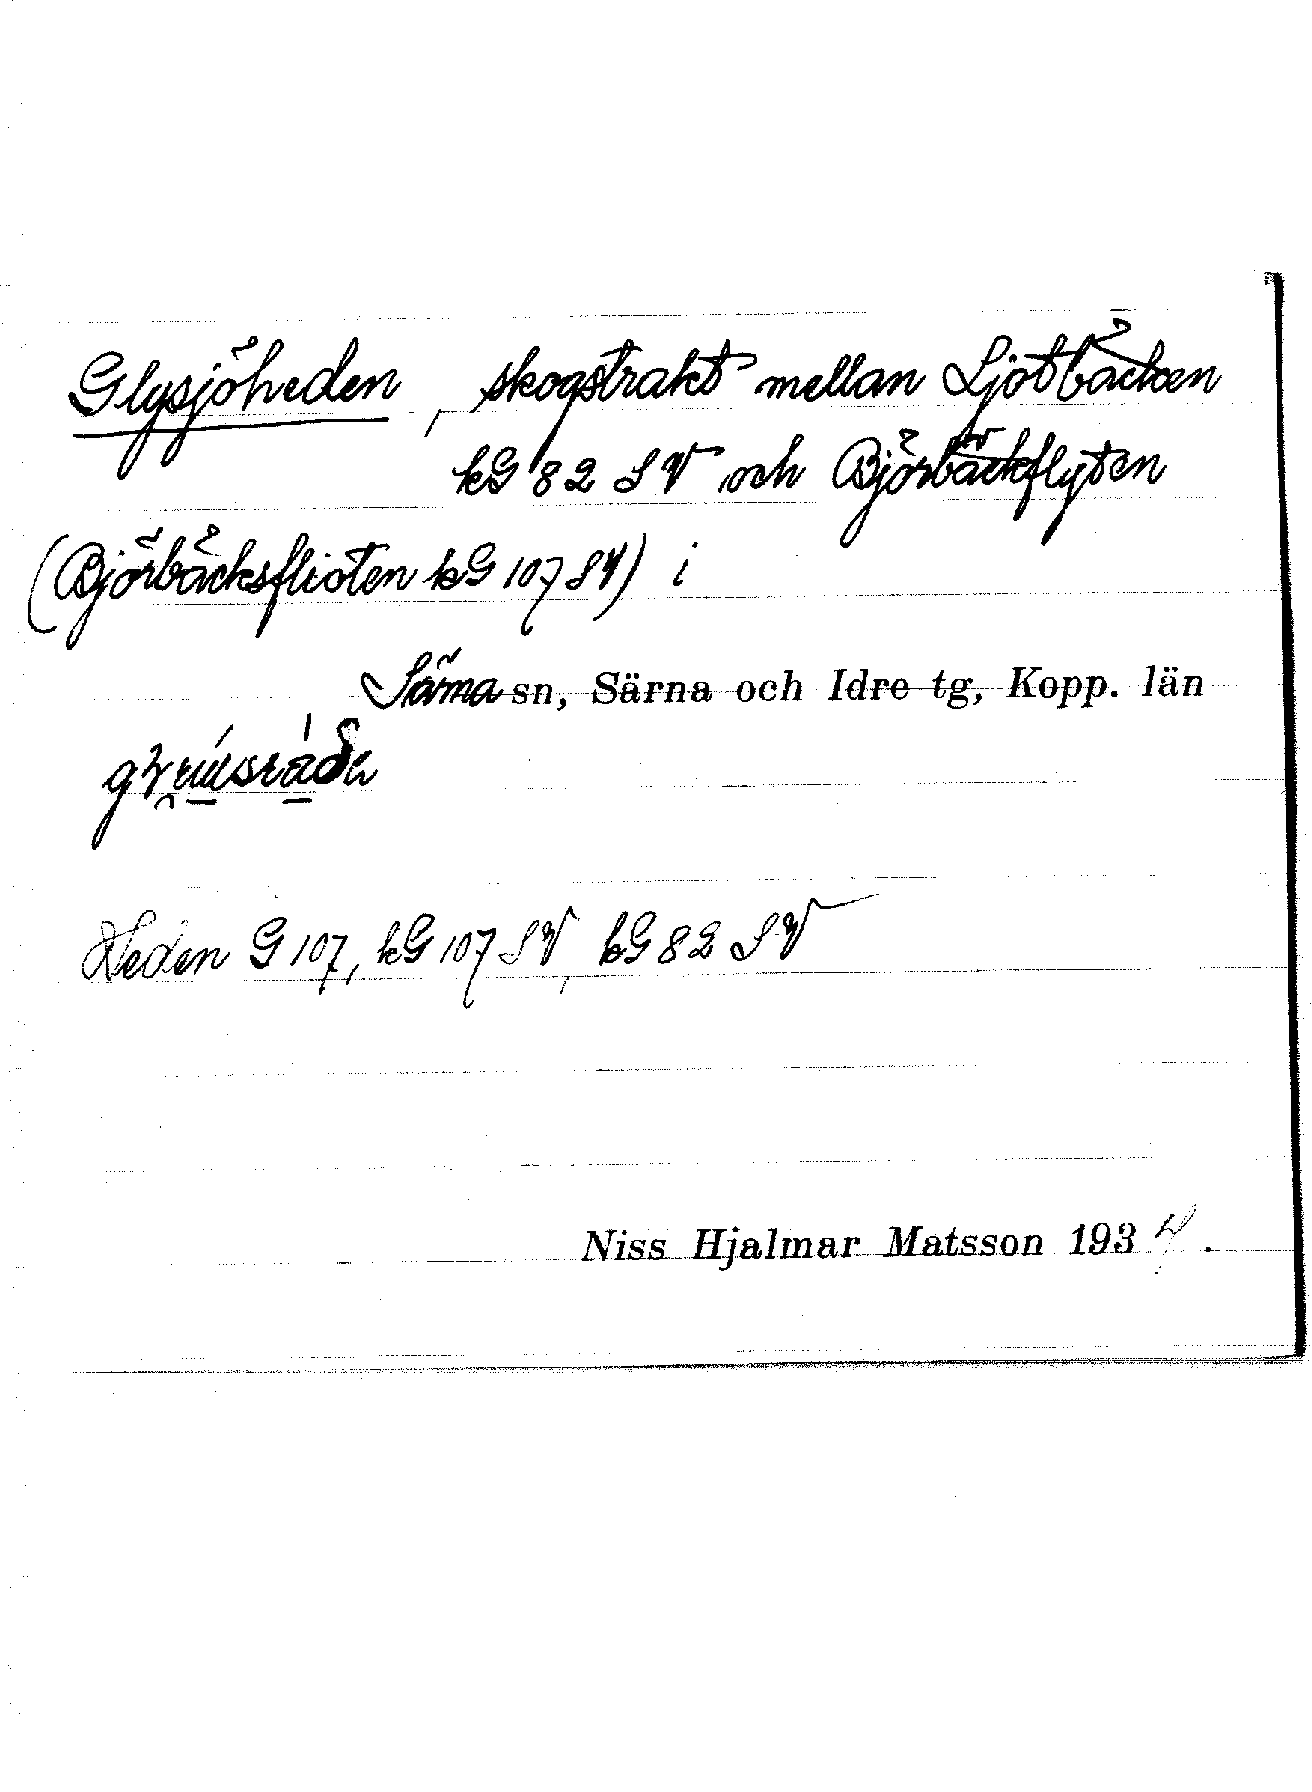 Glysjöheden, skogstrakt mellan Ljötbäcken
kG 82 SV och Björbäckflyten
(Björbäcksflioten kG 107 SV) i
Särna sn, Särna och Idre tg, Kopp. län
Heden G 107, kG 107 SV, kG 82 SV
Niss Hjalmar Matsson 1934.